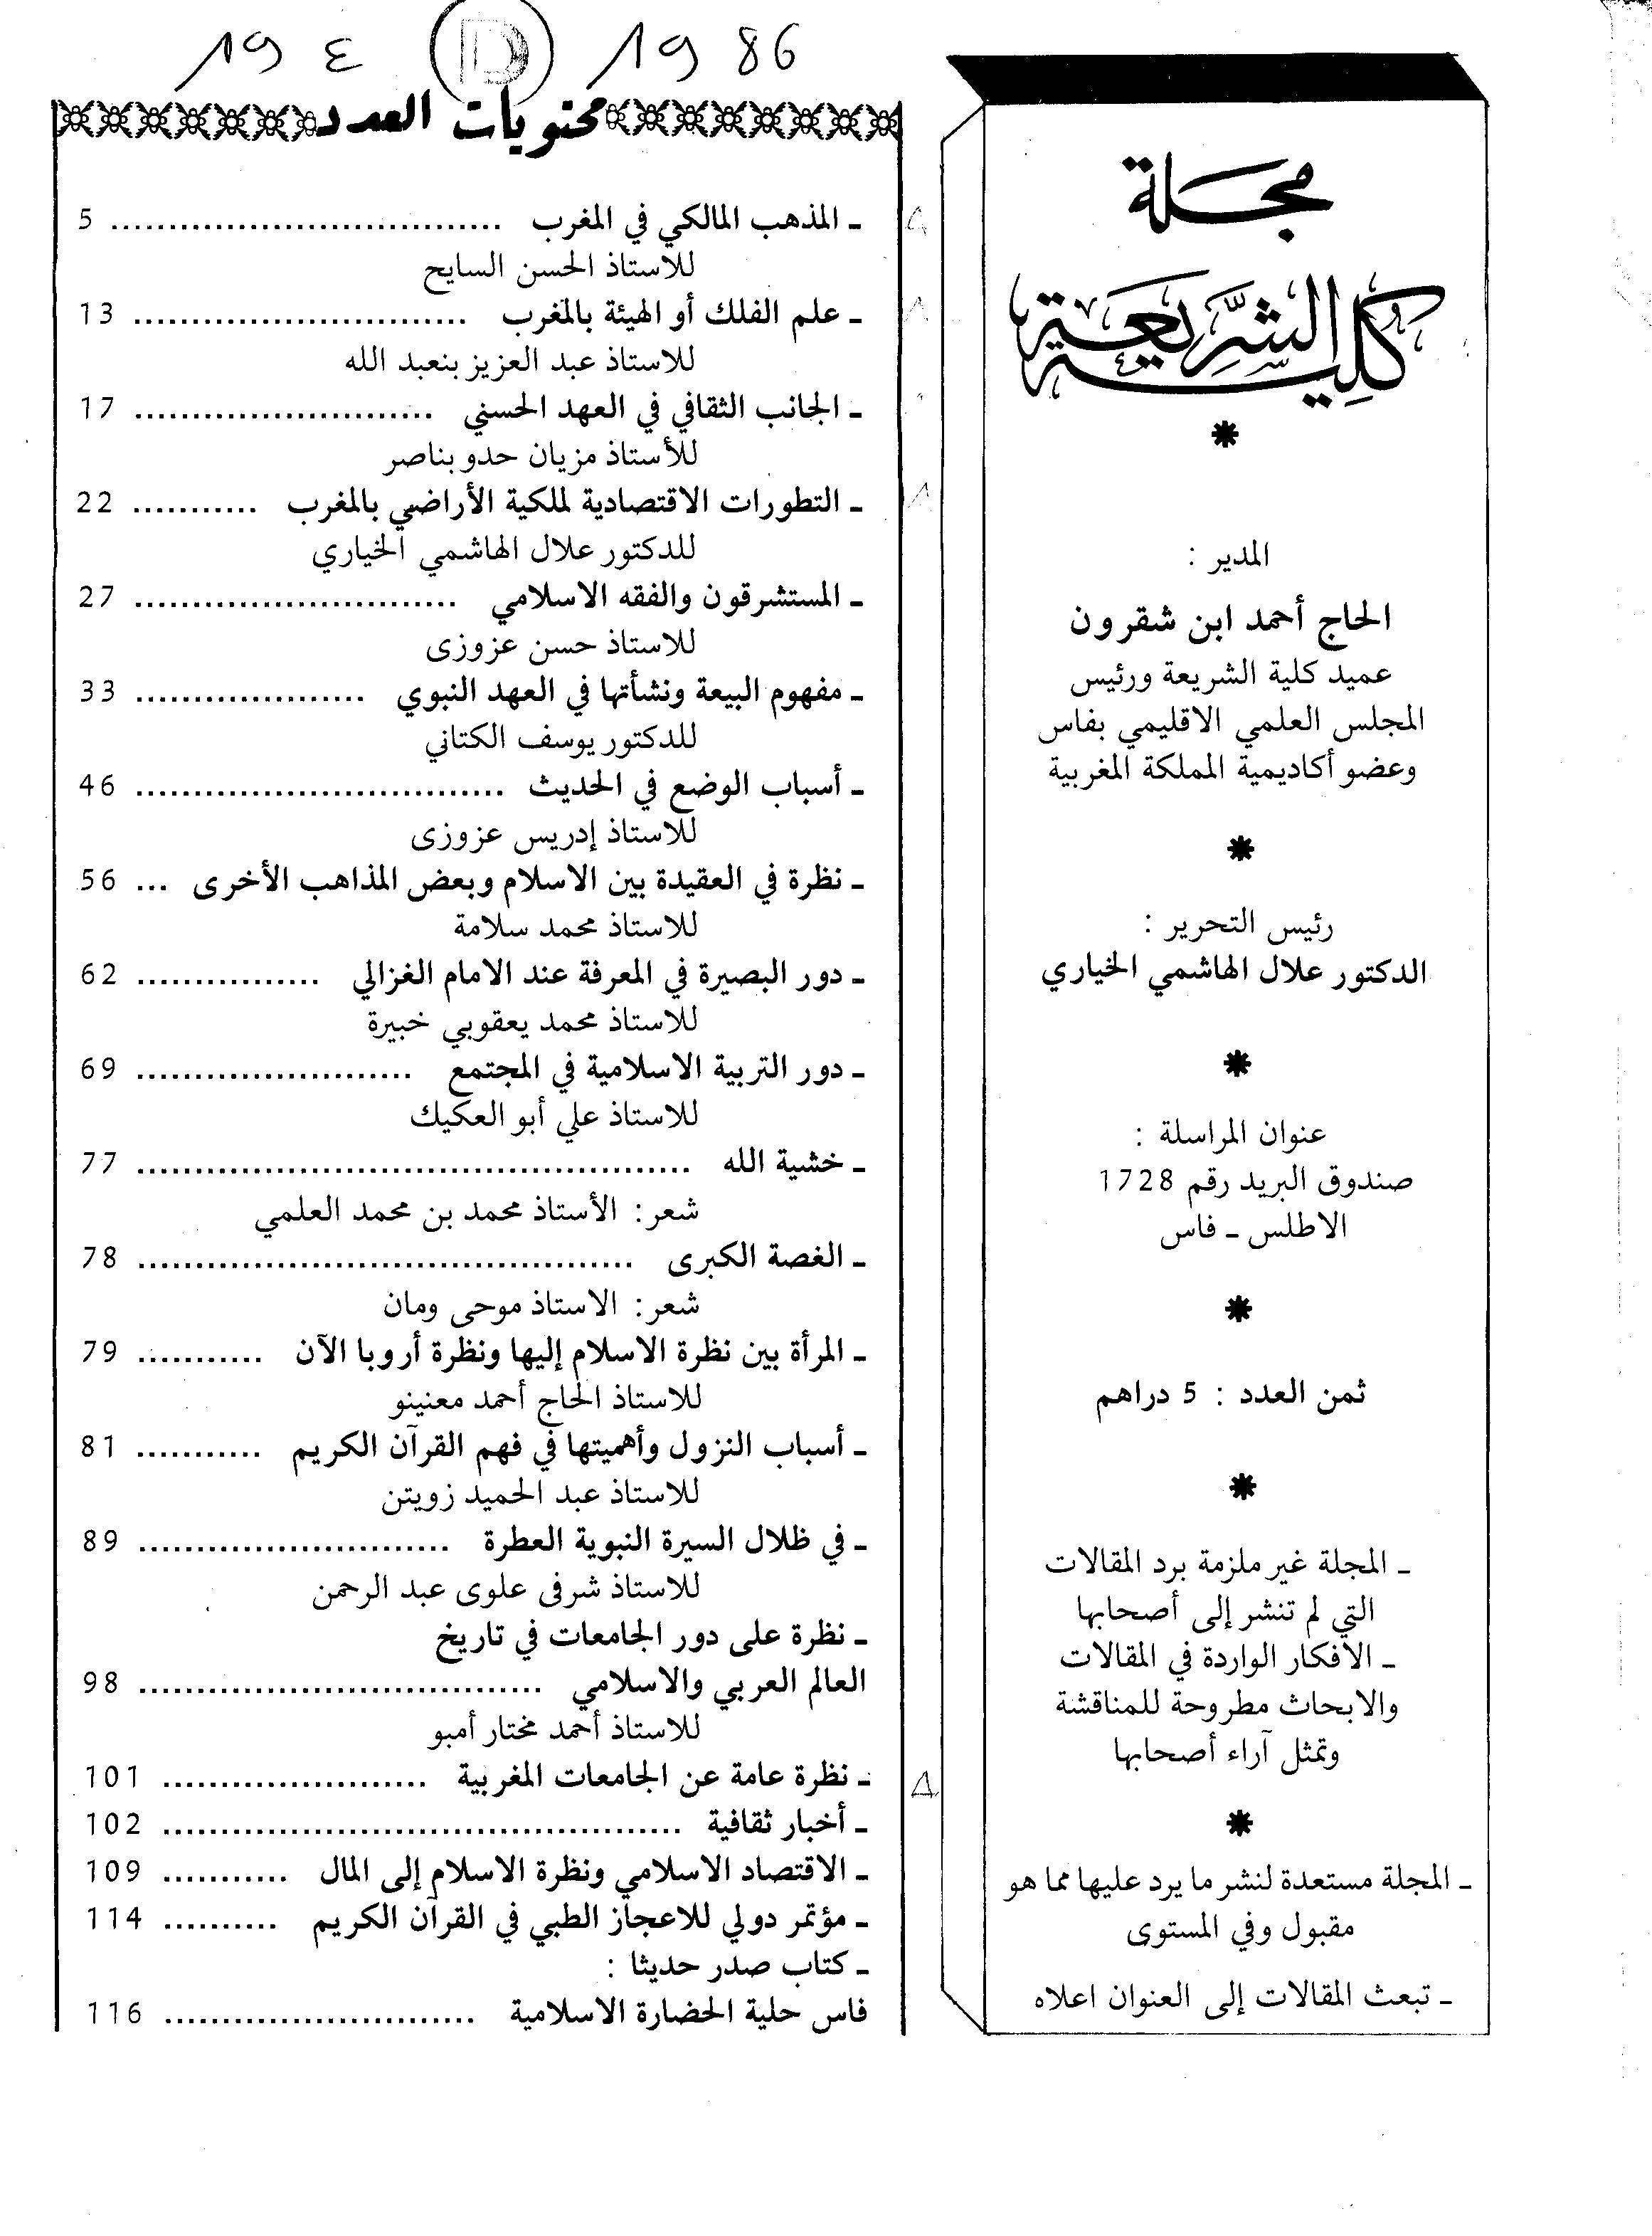 19 ع D 19 86
مجلة
كلية الشريعة
المدير :
الحاج أحمد ابن شقرون
عميد كلية الشريعة ورئيس
المجلس العلمي الاقليمي بفاس
وعضو أكاديمية المملكة المغربية
رئيس التحرير :
الدكتور علال الهاشمي الخياري
عنوان المراسلة :
صندوق البريد رقم 1728
الاطلس ـ فاس
ثمن العدد : 5 دراهم
ـ المجلة غير ملزمة برد المقالات
التي لم تنشر إلى أصحابها
ـ الافكار الواردة في المقالات
والابحاث مطروحة للمناقشة
وتمثل آراء أصحابها
ـ المجلة مستعدة لنشر ما يرد عليها مما هو
مقبول وفي المستوى
ـ تبعث المقالات إلى العنوان اعلاه
محتويات العدد
ـ المذهب المالكي في المغرب .................................. 5
للاستاذ الحسن السايح
ـ علم الفلك أو الهيئة بالمغرب ............................. 13
للاستاذ عبد العزيز بنعبد الله
ـ الجانب الثقافي في العهد الحسني .......................... 17
للأستاذ مزيان حدو بناصر
ـ التطورات الاقتصادية لملكية الأراضي بالمغرب ........... 22
للدكتور علال الهاشمي الخياري
ـ المستشرقون والفقه الاسلامي ............................ 27
للاستاذ حسن عزوزى
ـ مفهوم البيعة ونشأتها في العهد النبوي .................... 33
للدكتور يوسف الكتاني
ـ أسباب الوضع في الحديث ................................ 46
للاستاذ إدريس عزوزى
ـ نظرة في العقيدة بين الاسلام وبعض المذاهب الأخرى ... 56
للاستاذ محمد سلامة
ـ دور البصيرة في المعرفة عند الامام الغزالي ................ 62
للاستاذ محمد يعقوبي خبيرة
ـ دور التربية الاسلامية في المجتمع ........................ 69
للاستاذ علي أبو العكيك
ـ خشية الله ................................................ 77
شعر: الأستاذ محمد بن محمد العلمي
ـ الغصة الكبرى ........................................... 78
شعر: الاستاذ موحى ومان
ـ المرأة بين نظرة الاسلام إليها ونظرة أروبا الآن ........... 79
للاستاذ الحاج أحمد معنينو
ـ أسباب النزول وأهميتها في فهم القرآن الكريم ........... 81
للاستاذ عبد الحميد زويتن
ـ في ظلال السيرة النبوية العطرة ........................... 89
للاستاذ شرفى علوى عبد الرحمن
ـ نظرة على دور الجامعات في تاريخ
العالم العربي والاسلامي ................................... 98
للاستاذ أحمد مختار أمبو
ـ نظرة عامة عن الجامعات المغربية ....................... 101
ـ أخبار ثقافية ............................................. 102
ـ الاقتصاد الاسلامي ونظرة الاسلام إلى المال ........... 109
ـ مؤتمر دولي للاعجاز الطبي في القرآن الكريم .......... 114
ـ كتاب صدر حديثا :
فاس حلية الحضارة الاسلامية ........................... 116